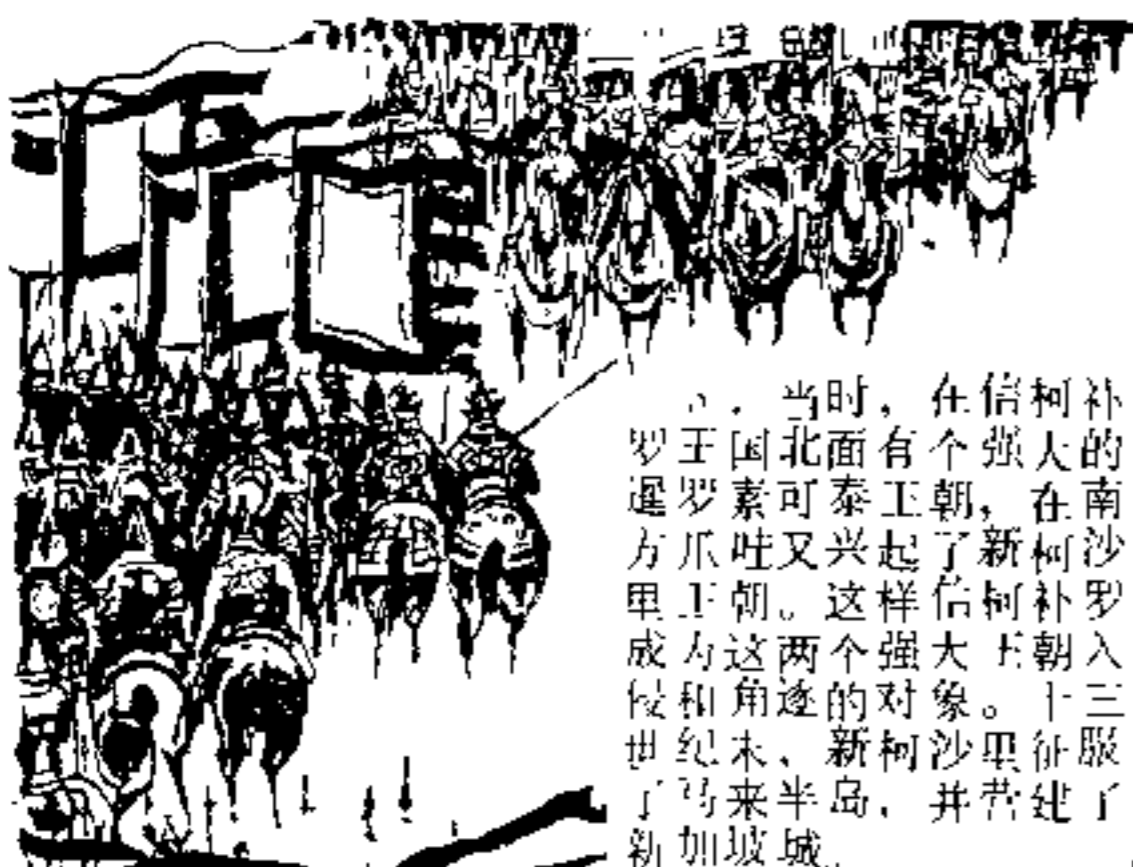 当时，在信柯补
罗王国北面有个强大的
暹罗素可泰王朝，在南
方爪哇又兴起了新柯沙
里王朝。这样信柯补罗
成为这两个强大王朝入
侵和角逐的对象。十三
世纪末，新柯沙里征服
了马来半岛，并营建了
新加坡城。